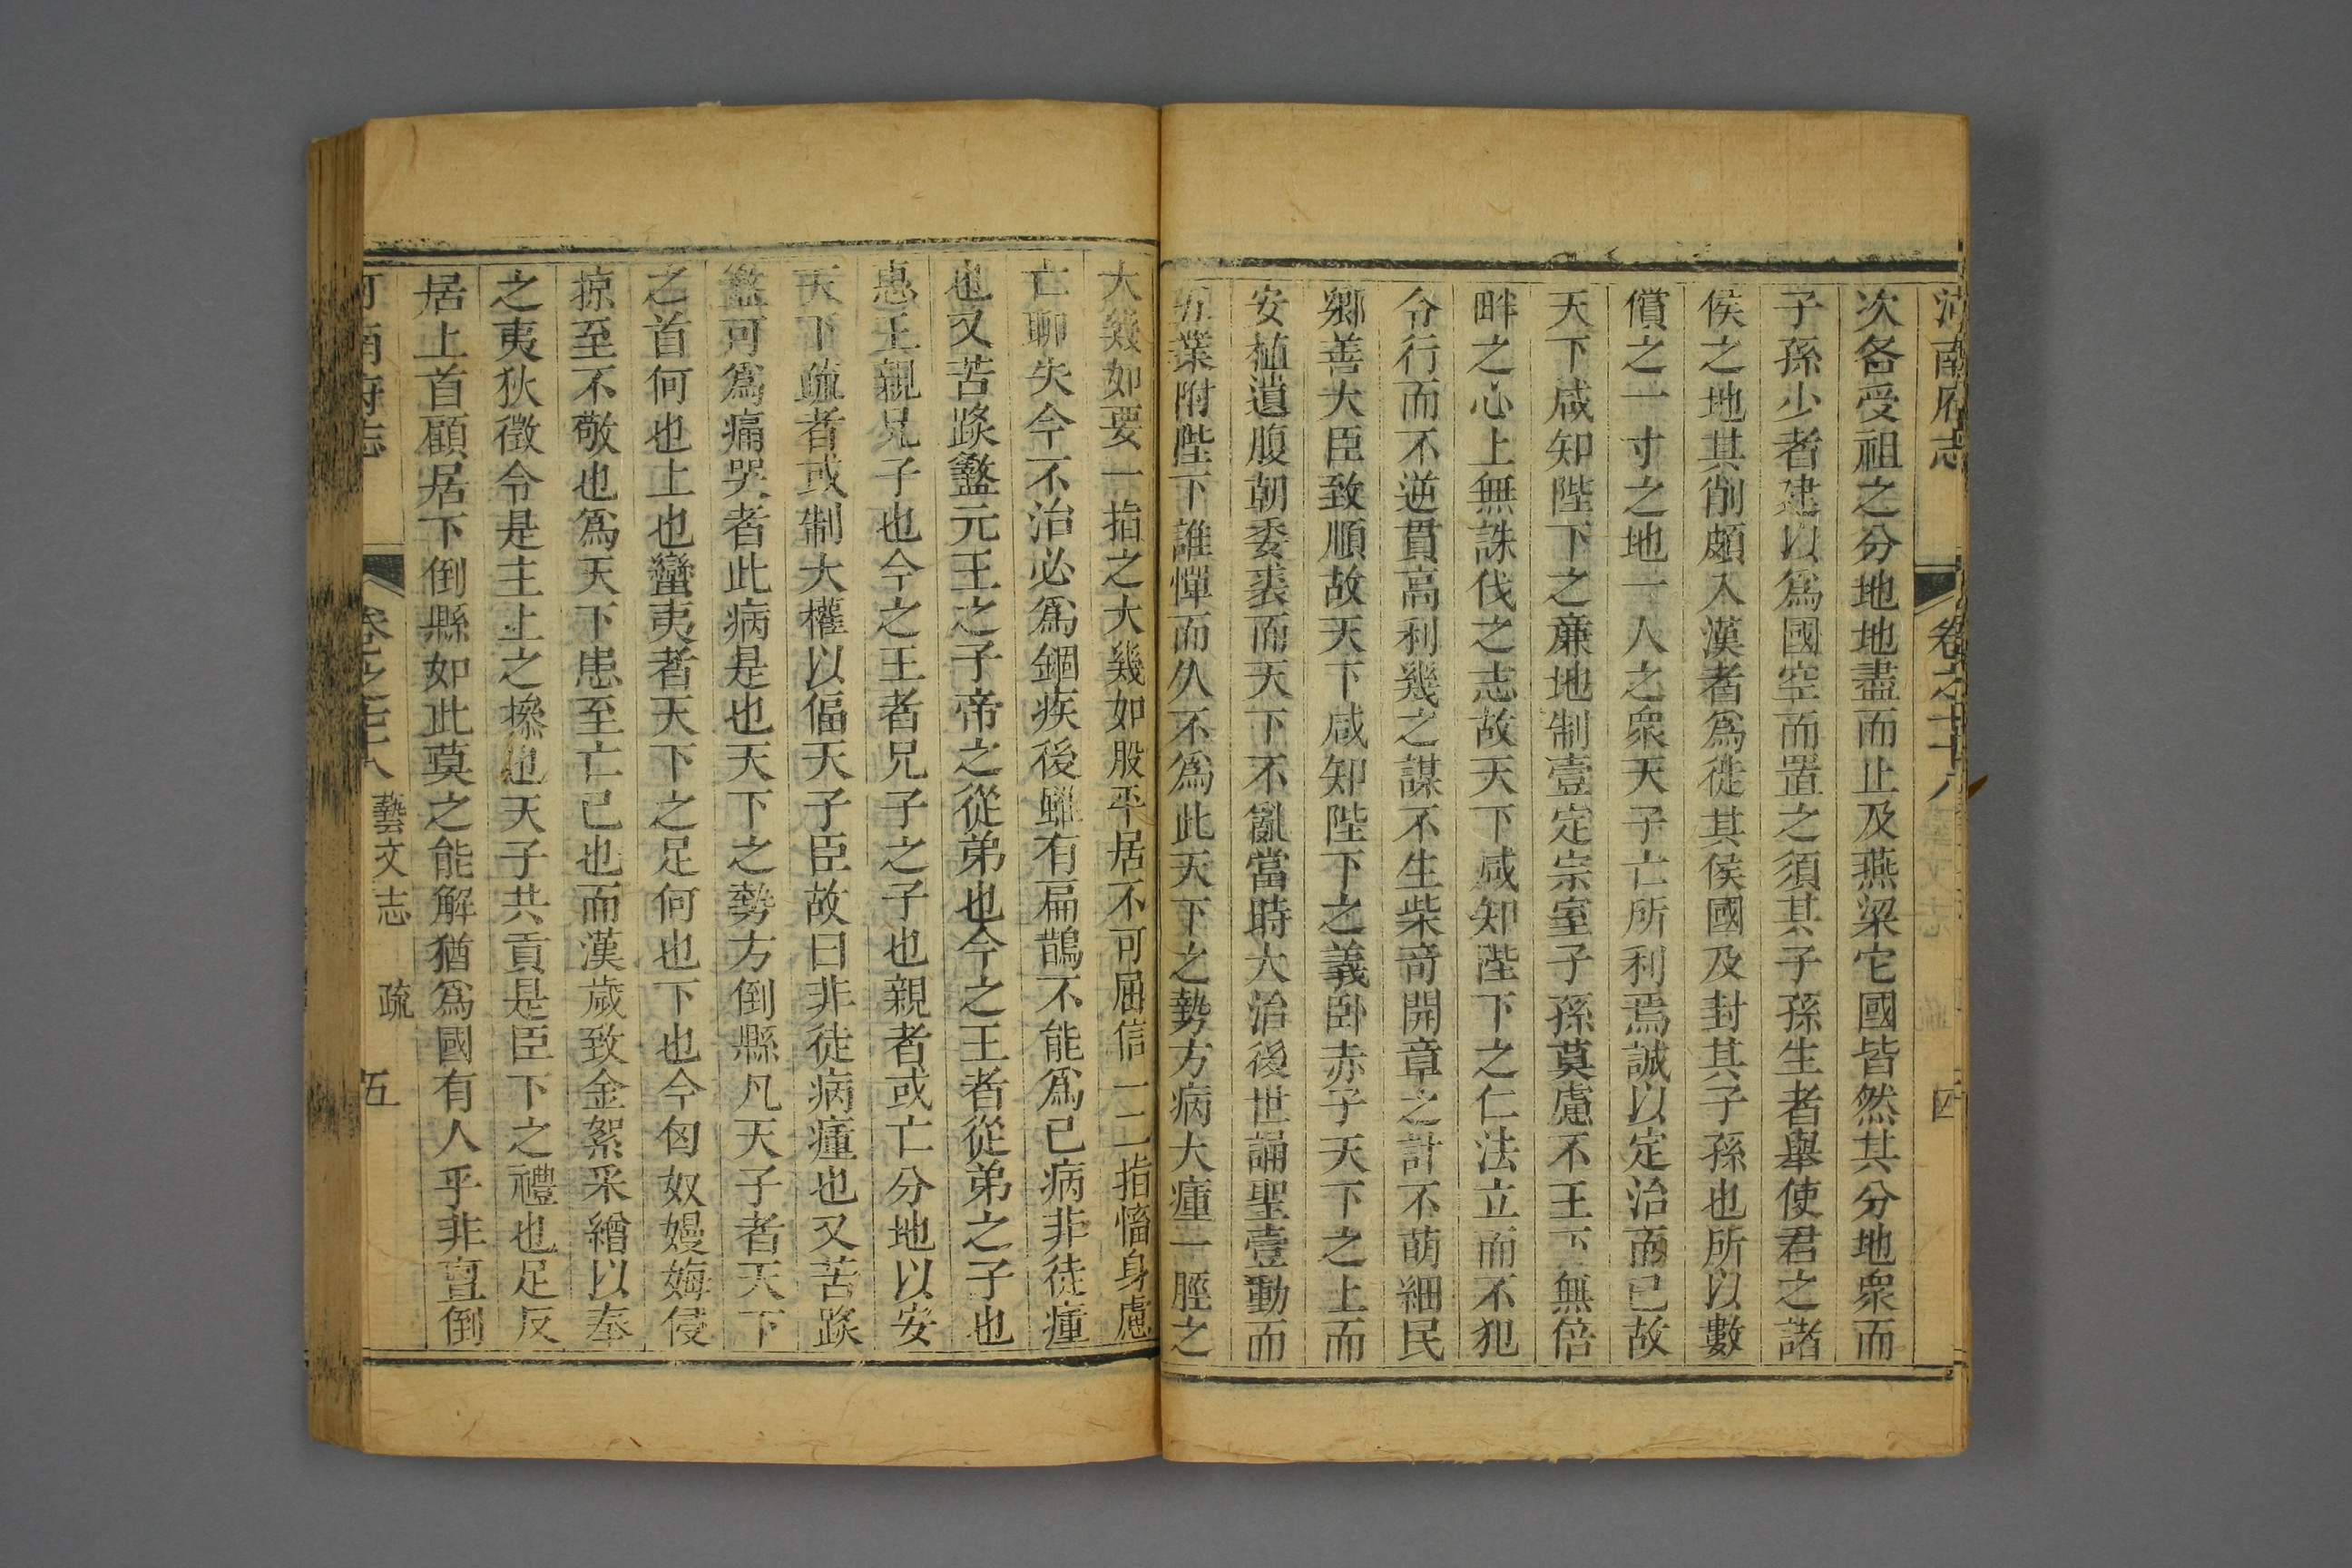 河南府志 卷之七十八 四
次各受祖之分地地盡而止及燕梁它國皆然其分地衆而
子孫少者建以爲國空而置之須其子孫生者舉使君之諸
侯之地其削頗入漢者爲徙其侯國及封其子孫也所以數
償之一寸之地一人之衆天子亡所利焉誠以定治而已故
天下咸知陛下之廉地制壹定宗室子孫莫慮不王下無倍
畔之心上無誅伐之志故天下咸知陛下之仁法立而不犯
令行而不逆貫高利幾之謀不生柴奇開章之計不萌細民
鄉善大臣致順故天下咸知陛下之義卧赤子天下之上而
安植遺腹朝委裘而天下不亂當時大治後世誦聖壹動而
五業附陛下誰憚而久不爲此天下之勢方病大瘇一脛之
大幾如要一指之大幾如股平居不可屈信一二指慉身慮
亡聊失今不治必爲錮疾後雖有扁鵲不能爲已病非徒瘇
也又苦䟿盭元王之子帝之從弟也今之王者從弟之子也
惠王親兄子也今之王者兄子之子也親者或亡分地以安
天下疏者或制大權以偪天子臣故曰非徒病瘇也又苦䟿
盭可爲痛哭者此病是也天下之勢方倒縣凡天子者天下
之首何也上也蠻夷者天下之足何也下也今匈奴嫚娒侵
掠至不敬也爲天下患至亡已也而漢歲致金絮采繒以奉
之夷狄徵令是主上之操也天子共貢是臣下之禮也足反
居上首顧居下倒縣如此莫之能解猶爲國有人乎非亶倒
河南府志 卷之七十八 藝文志 疏 五